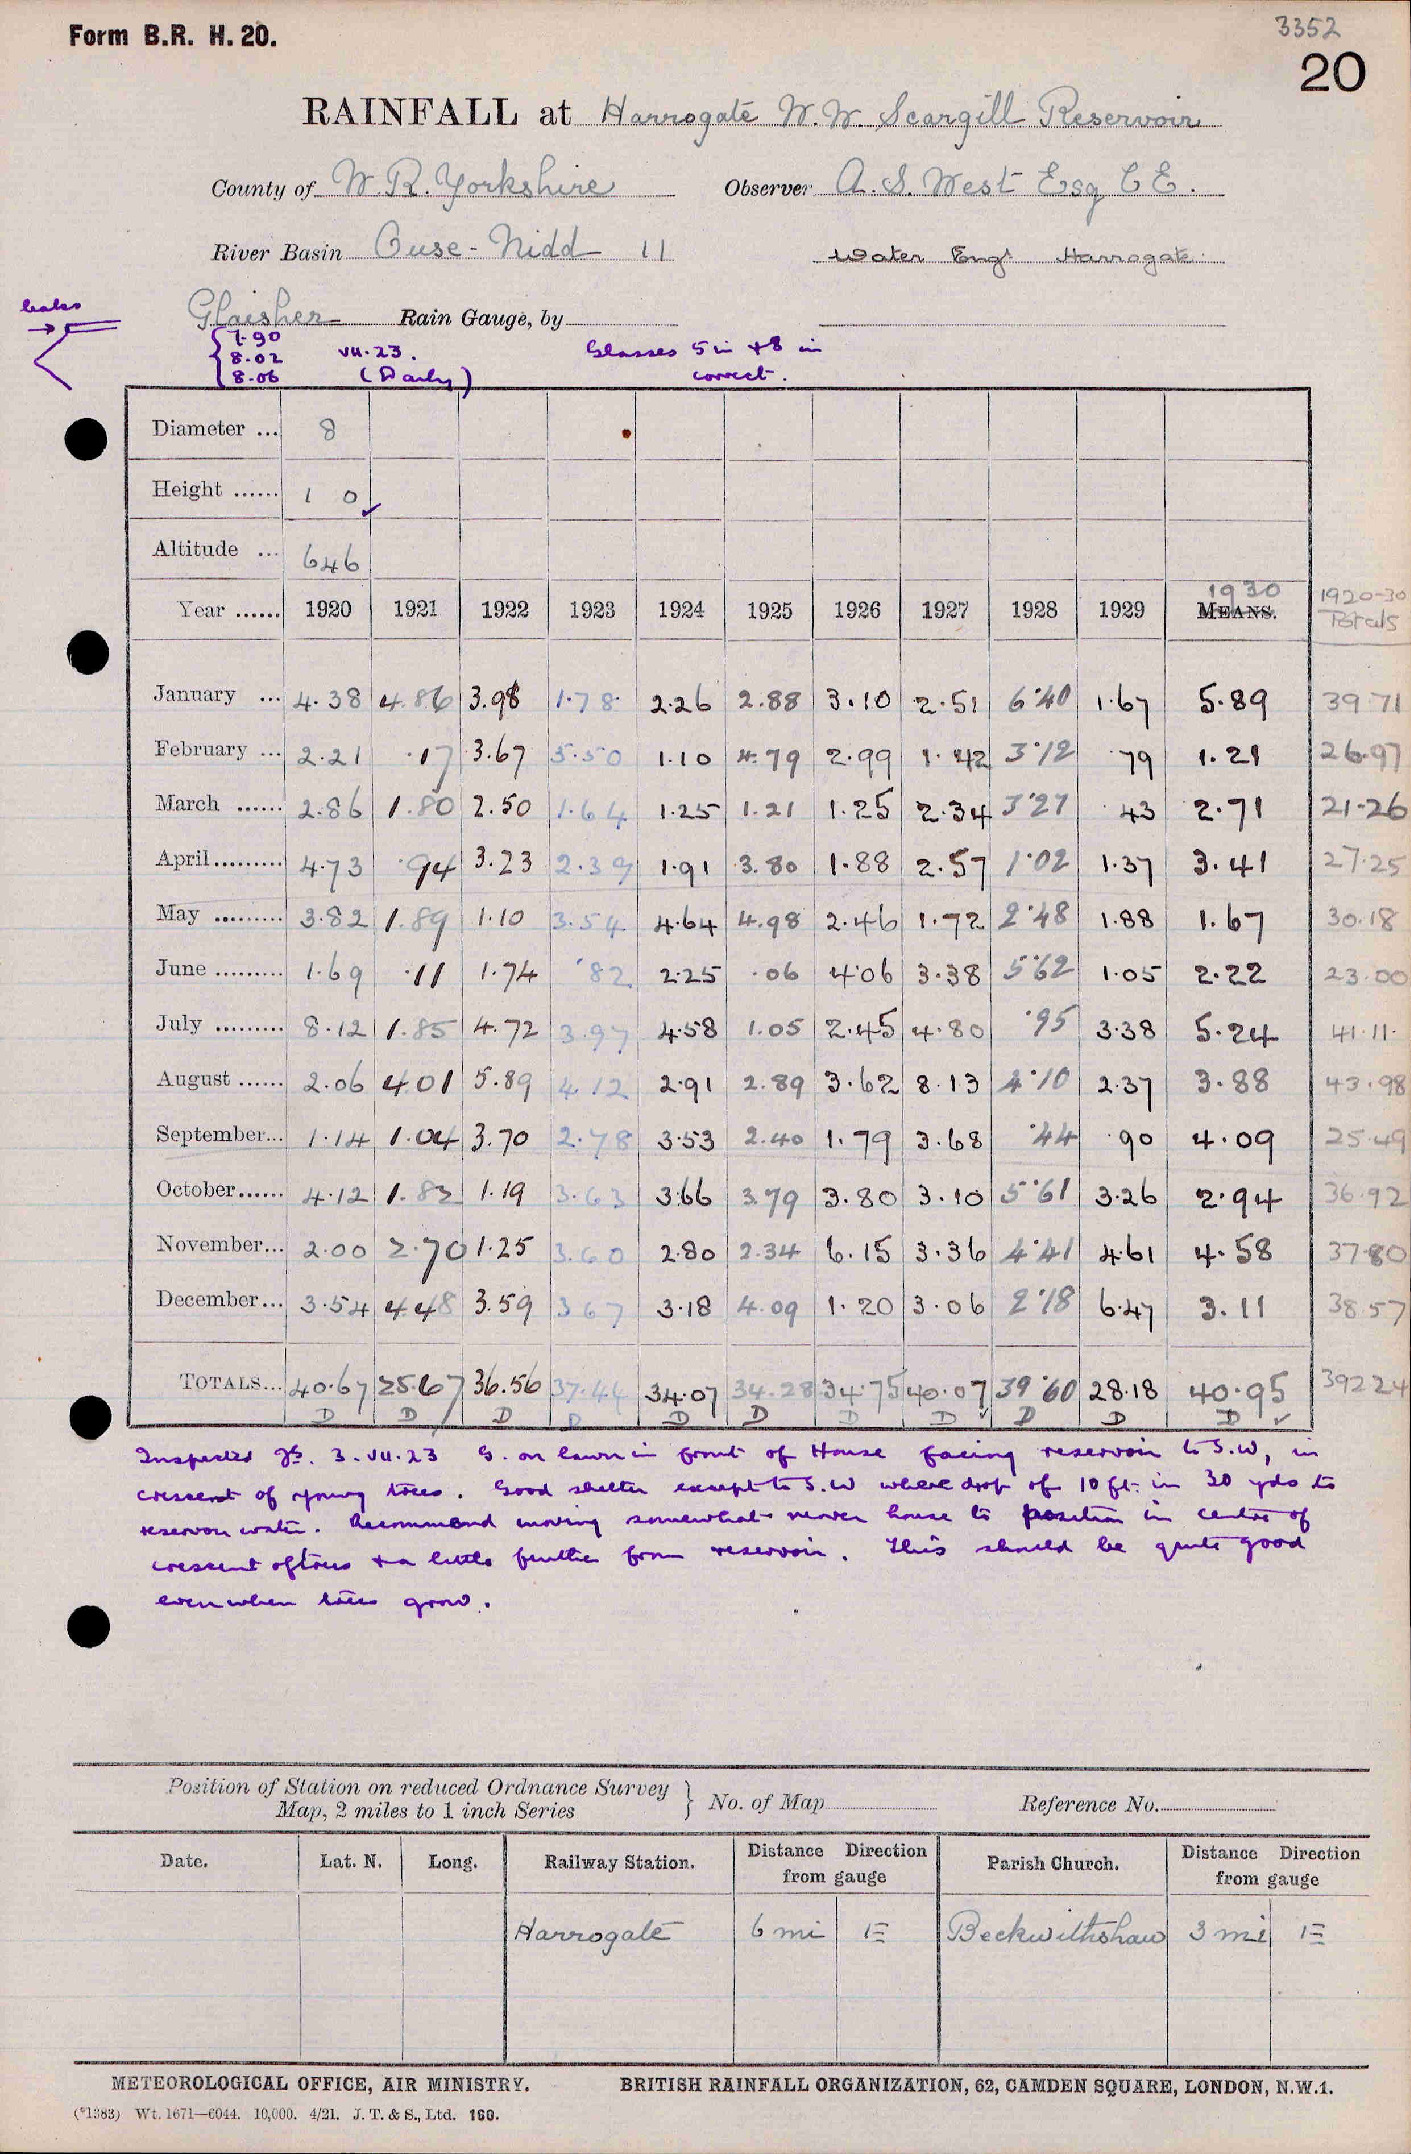 Form B.R. H. 20.
3352
20
RAINFALL at Harrogate W.W. Scargill Reservoir
County of W.R. Yorkshire Observer A.S. West Esq C E.
River Basin Ouse-Nidd 11 Water Engr Harrogate
leaks
Glaisher Rain Gauge, by
7.90
8.02 VII.23. Glasses 5 in + 8 in
8.06 (Daily) correct.
Diameter ... 8
Height ...... 1 0
Altitude ... 646
Year ...... 1920 1921 1922 1923 1924 1925 1926 1927 1928 1929 MEANS. 1930 1920-30 Totals
January ... 4.38 4.86 3.98 1.78 2.26 2.88 3.10 2.51 6.40 1.67 5.89 39.71
February ... 2.21 .17 3.67 5.50 1.10 4.79 2.99 1.42 3.12 .79 1.21 26.97
March ...... 2.86 1.80 2.50 1.64 1.25 1.21 1.25 2.34 3.27 .43 2.71 21.26
April......... 4.73 .94 3.23 2.39 1.91 3.80 1.88 2.57 1.02 1.37 3.41 27.25
May ......... 3.82 1.89 1.10 3.54 4.64 4.98 2.46 1.72 2.48 1.88 1.67 30.18
June ......... 1.69 .11 1.74 .82 2.25 .06 4.06 3.38 5.62 1.05 2.22 23.00
July ......... 8.12 1.85 4.72 3.97 4.58 1.05 2.45 4.80 .95 3.38 5.24 41.11
August ...... 2.06 4.01 5.89 4.12 2.91 2.89 3.62 8.13 4.10 2.37 3.88 43.98
September... 1.14 1.04 3.70 2.78 3.53 2.40 1.79 3.68 .44 .90 4.09 25.49
October...... 4.12 1.82 1.19 3.63 3.66 3.79 3.80 3.10 5.61 3.26 2.94 36.92
November... 2.00 2.70 1.25 3.60 2.80 2.34 6.15 3.36 4.41 4.61 4.58 37.80
December... 3.54 4.48 3.59 3.67 3.18 4.09 1.20 3.06 2.18 6.47 3.11 38.57
TOTALS... 40.67 25.67 36.56 37.44 34.07 34.28 34.75 40.07 39.60 28.18 40.95 392.24
D D D D D D D D D D D
Inspected 3.VII.23 G. on lawn in front of House facing reservoir to S.W, in
crescent of young trees. Good shelter except to S.W where drop of 10 ft. in 30 yds to
reservoir water. Recommend moving somewhat nearer house to position in centre of
crescent of trees + a little further from reservoir. This should be quite good
even when trees grow.
Position of Station on reduced Ordnance Survey
Map, 2 miles to 1 inch Series } No. of Map Reference No.
Date. Lat. N. Long. Railway Station. Distance Direction from gauge Parish Church. Distance Direction from gauge
Harrogate 6 mi E Beckwithshaw 3 mi E
METEOROLOGICAL OFFICE, AIR MINISTRY. BRITISH RAINFALL ORGANIZATION, 62, CAMDEN SQUARE, LONDON, N.W.1.
(*1383) Wt. 1671—6044. 10,000. 4/21. J. T. & S., Ltd. 160.